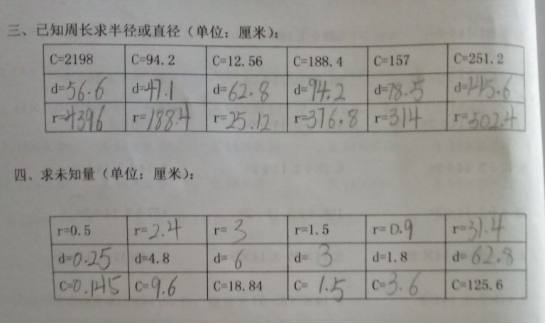 三、已知周长求半径或直径（单位：厘米）：
C=2198 C=94.2 C=12.56 C=188.4 C=157 C=251.2
d=56.6 d=47.1 d=62.8 d=94.2 d=78.5 d=145.6
r=4396 r=188.4 r=25.12 r=376.8 r=314 r=502.4
四、求未知量（单位：厘米）：
r=0.5 r=2.4 r=3 r=1.5 r=0.9 r=31.4
d=0.25 d=4.8 d=6 d=3 d=1.8 d=62.8
C=0.145 C=9.6 C=18.84 C=1.5 C=3.6 C=125.6